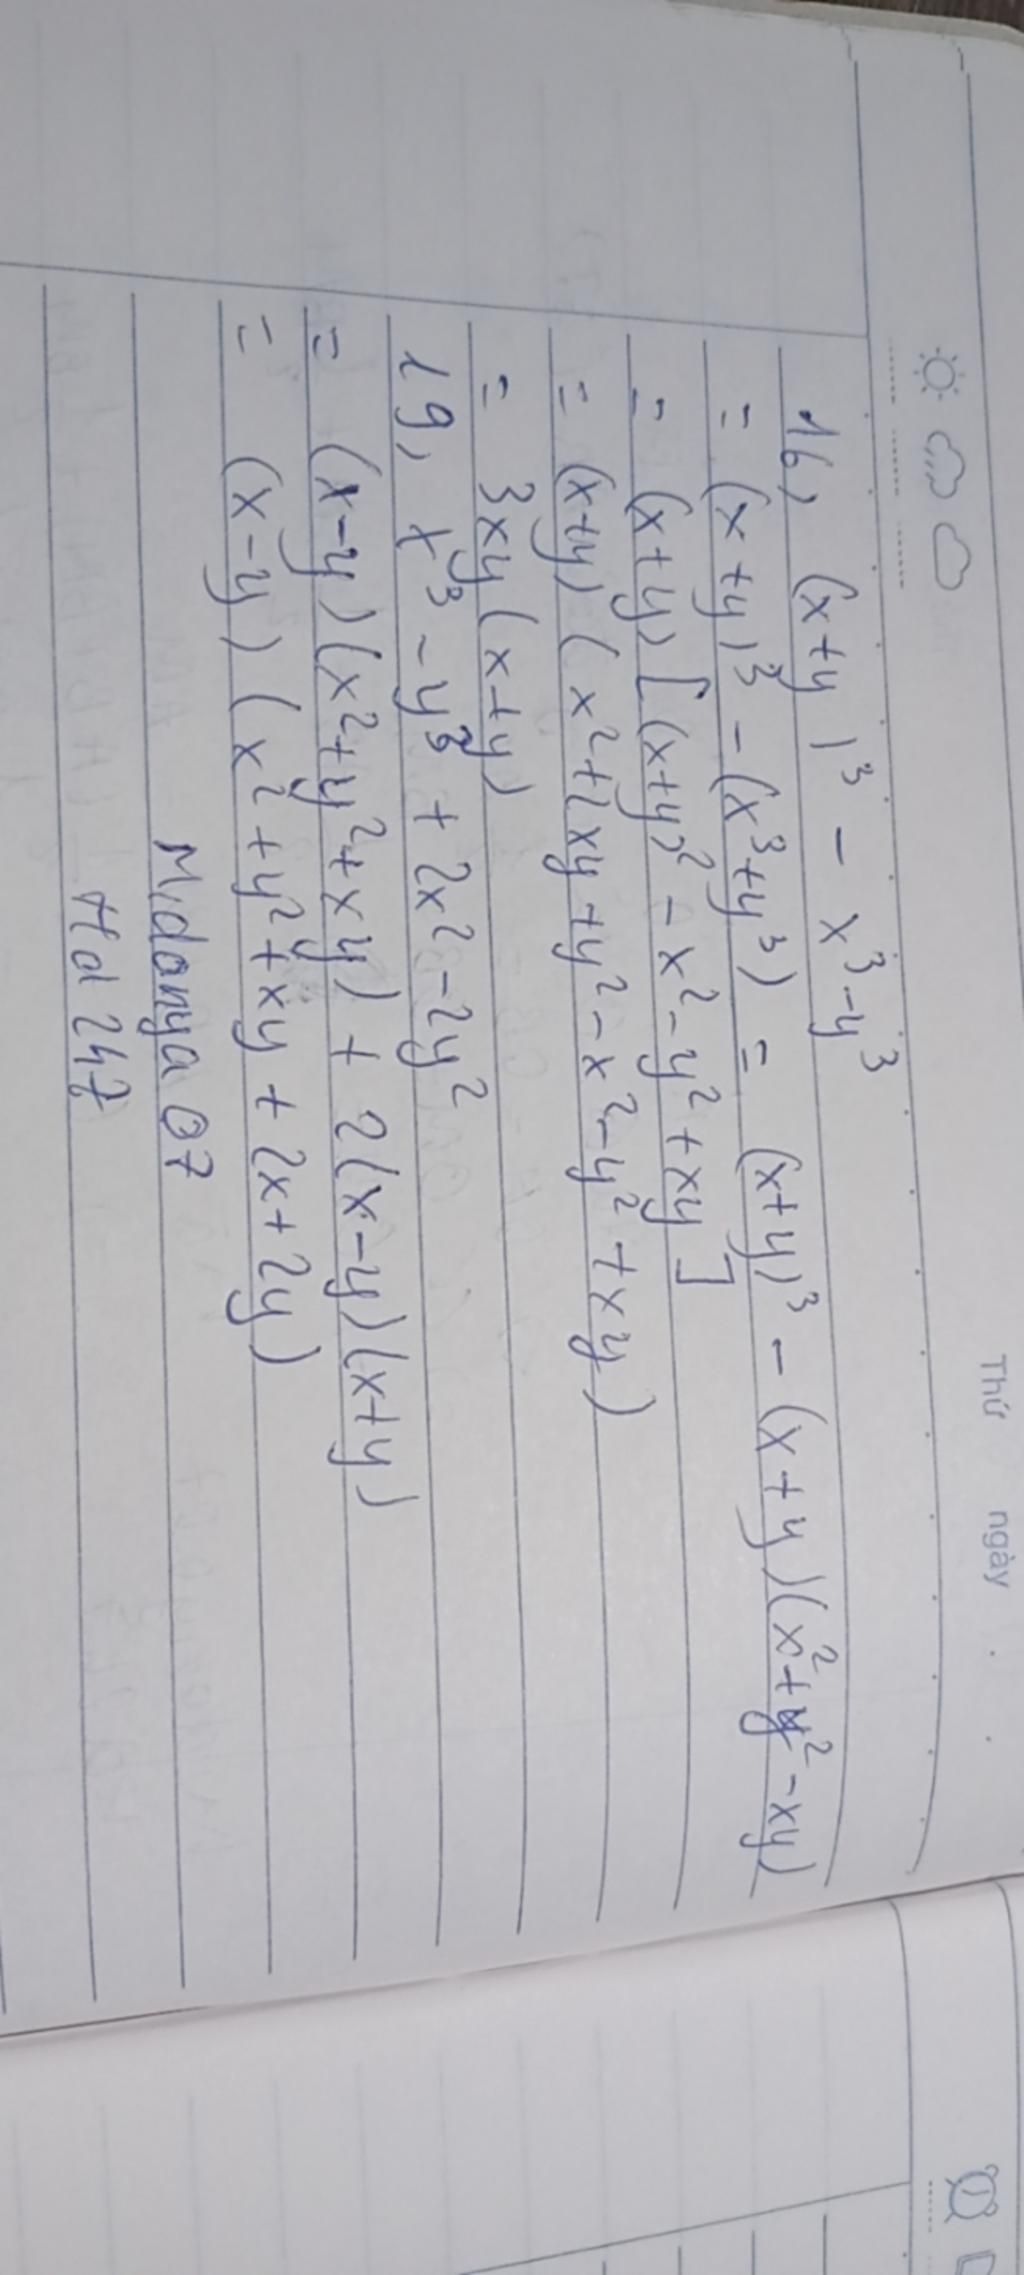 Thứ ngày
16, (x+y)³ - x³-y³
= (x+y)³ - (x³+y³) = (x+y)³ - (x+y)(x²+y²-xy)
= (x+y)[(x+y)² - x² - y² + xy]
= (x+y)(x²+2xy+y²-x²-y²+xy)
= 3xy(x+y)
19, x³-y³ + 2x²-2y²
= (x-y)(x²+y²+xy) + 2(x-y)(x+y)
= (x-y)(x²+y²+xy+2x+2y)
Midanya 07
Hd 247